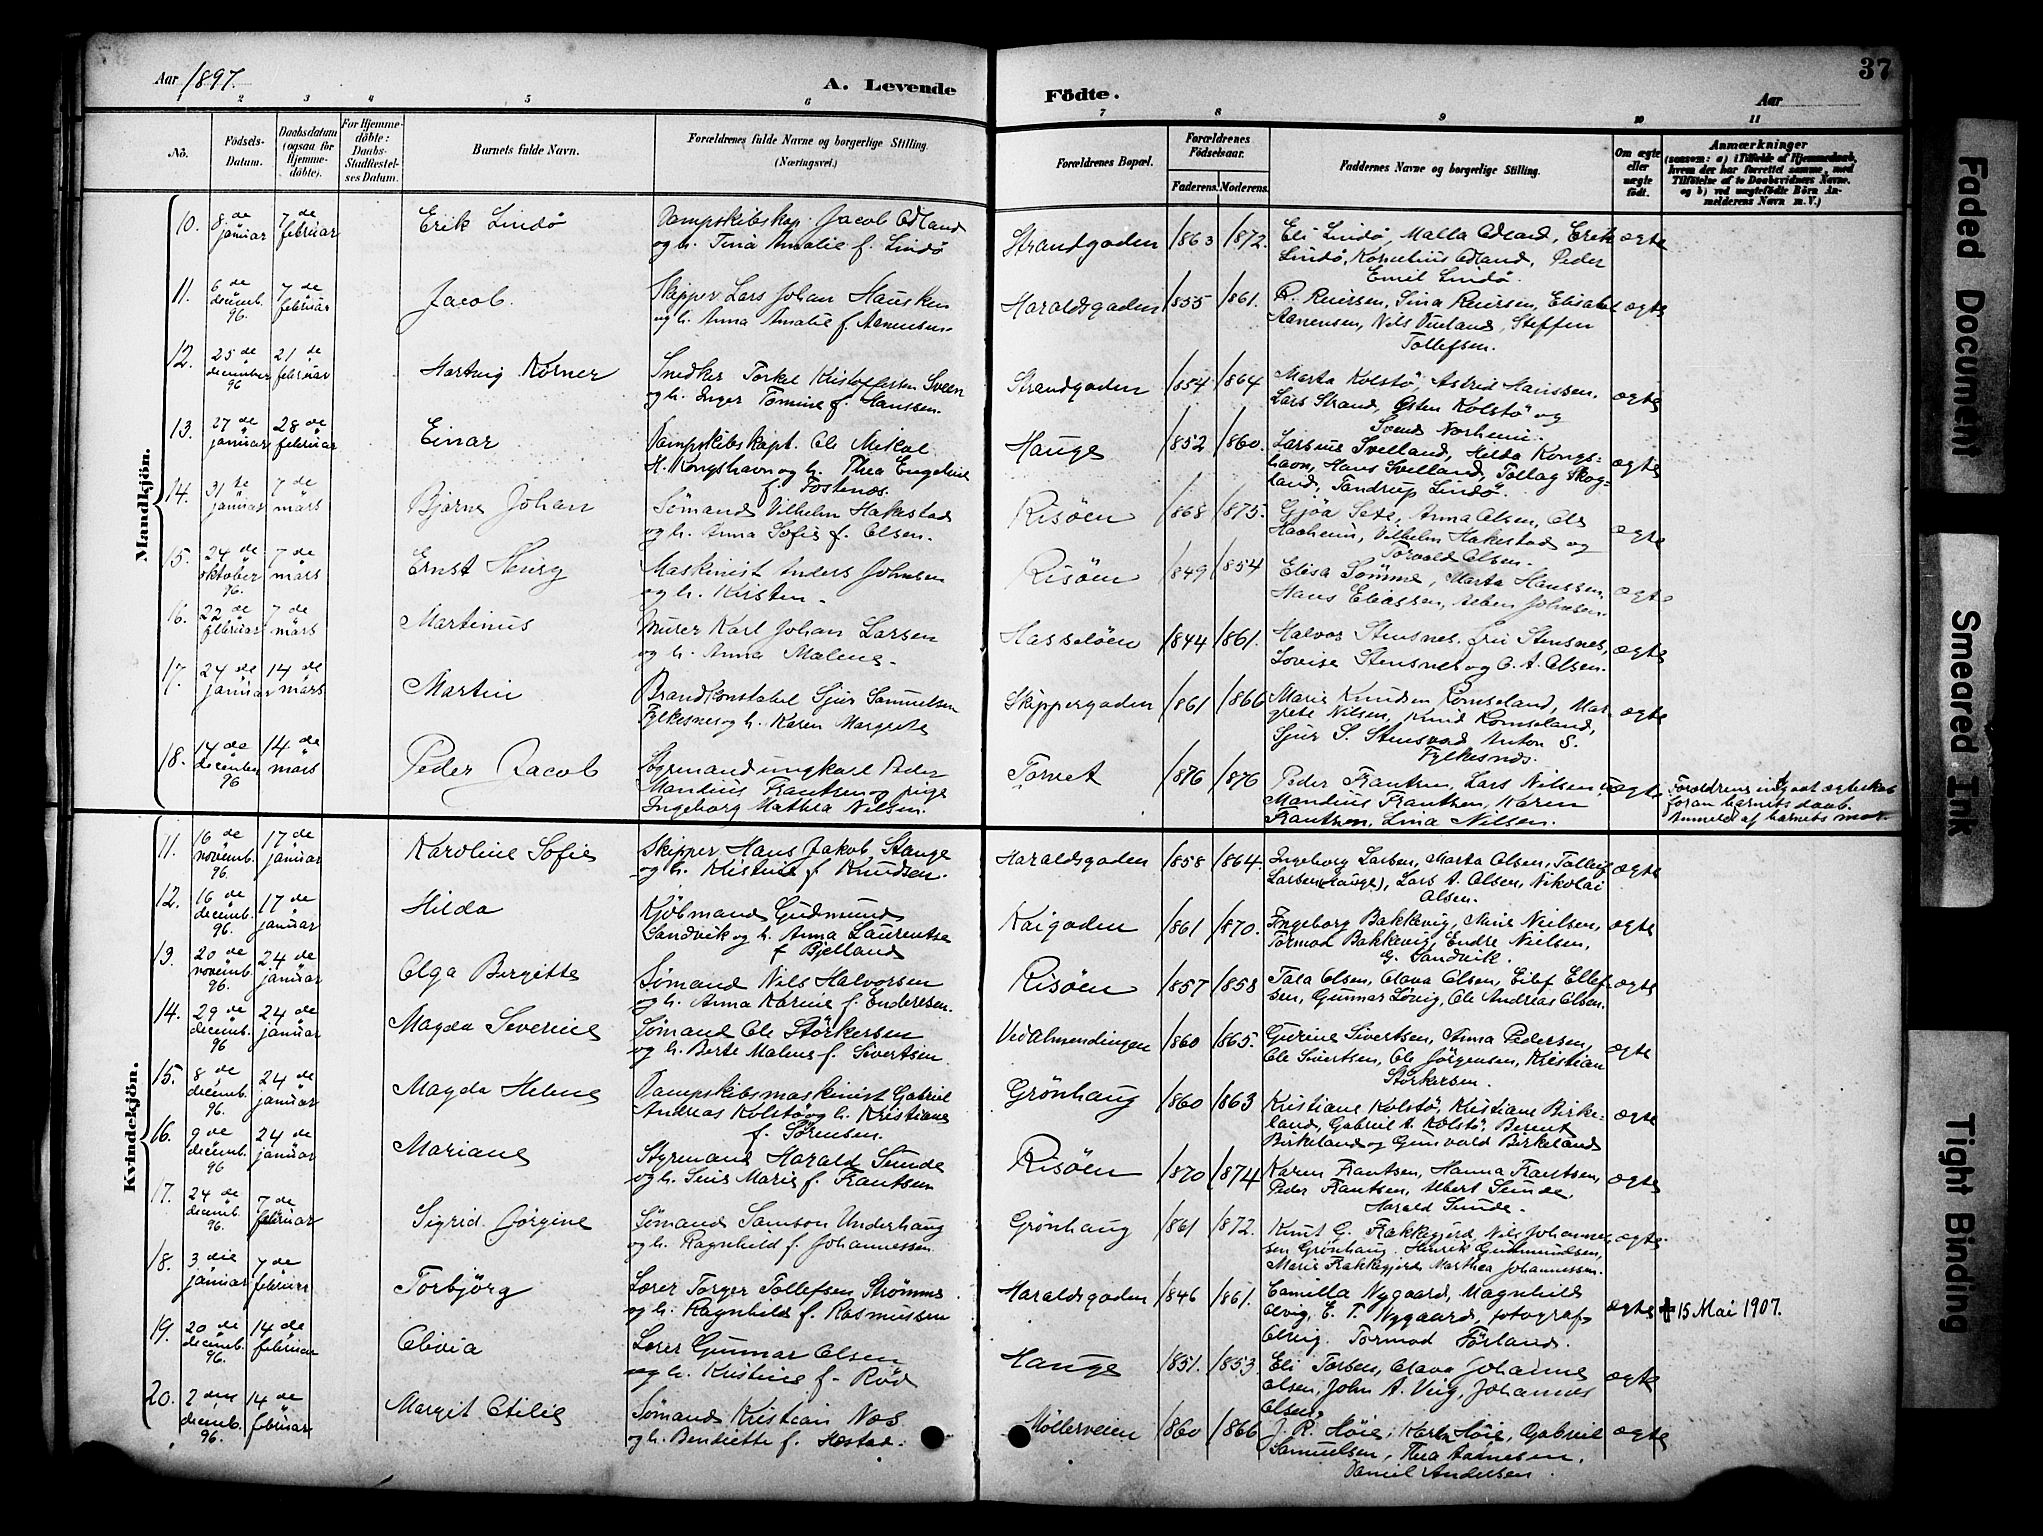 Aar 1897.
A. Levende
Födte.
Aar
37
1 2 3 4 5 6 7 8 9 10 11
No.
Födsels-Datum.
Daabsdatum (ogsaa for Hjemme-döbte).
For Hjemme-döbte: Daabs-Stadfæstel-ses Datum.
Barnets fulde Navn.
Forældrenes fulde Navne og borgerlige Stilling. (Næringsvei.)
Forældrenes Bopæl.
Forældrenes Födselsaar.
Faderens. Moderens.
Faddernes Navne og borgerlige Stilling.
Om ægte eller uægte födt.
Anmærkninger
(saasom: a) i Tilfælde af Hjemmedaab,
hvem der har forrettet samme, med
Tilföielse af to Daabsvidners Navne.
og b) ved uægtefödte Börn An-
melderens Navn m. V.)
Mandkjön.
10. 8de januar 7de februar Erik Lindö Dampskibskap. Jacob Odland
og h. Tina Amalie f. Lindö
Strandgaden 1863 1872. Eli Lindö, Malla Odland, Erik
Lindö, Kornelius Odland, Peder
Emil Lindö. ægte
11. 6de decemb. 96. 7de februar Jacob. Skipper Lars Johan Hausken
og h. Anna Amalie f. Aanensen
Haraldsgaden 1855 1861. R. Reiersen, Sina Reiersen, Elisabet
Aanensen, Nils Vueland, Steffen
Tollefsen. ægte
12. 25de december 96 21de februar Hartvig Körner Snedker Torkel Kristoffersen Sveen
og h. Inger Tomine f. Hanssen.
Strandgaden 1854 1864 Marta Kolstö, Astrid Hanssen.
Lars Strand, Östen Kolstö og
Svend Norheim. ægte
13. 27de januar 28de februar Einar Dampskibskapt. Ole Mikal
H. Kongshavn og h. Thea Engeline
f. Fostenæs.
Hauge 1852 1860. Larsine Svelland, Hilda Kongs-
havn, Hans Svelland, Tollag Skog-
land, Tandrup Lindö. ægte
14. 31te januar 7de mars Bjarne Johan Sömand Vilhelm Hakestad
og h. Anna Sofie f. Olsen.
Risöen 1868 1875. Gjöa Sete, Anna Olsen, Ole
Haaheim, Vilhelm Hakestad og
Torvald Olsen. ægte
15. 24de oktober 96. 7de mars Ernst Henry Maskinist Anders Johnsen
og h. Kirsten.
Risöen 1849 1854 Elisa Sömme, Marta Hanssen,
Hans Eliassen, Johnsen. ægte
16. 22de februar 7de mars Martinus Murer Karl Johan Larsen
og h. Anna Malene.
Hasselöen 1844 1861. Halvor Stensnes, Stensnes,
Lovise Stensnes og O. A. Olsen. ægte
17. 24de januar 14de mars Martin Brandkonstabel Sjur Samuelsen
Fylkesnes og h. Karen Margrete
Skippergaden 1861 1866 Marie Knudsen Romseland, Mar-
grete Nilsen, Knud Romseland,
Sjur S. Stensvad Anton S.
Fylkesnes. ægte
18. 14de december 96 14de mars Peder Jacob Styrmand ungkarl Peder
Mandius Frantsen og pige
Ingeborg Mathea Nilsen.
Torvet 1876 1876 Peder Frantsen, Lars Nilsen,
Mandius Frantsen, Karen
Frantsen, Lina Nilsen. uægte Forældrene indgaat ægteskab
foran barnets daab.
Anmeldt af barnets mor.
Kvindekjön.
11. 16de novemb. 96. 17de januar Karoline Sofie Skipper Hans Jakob Stange
og h. Kristine f. Knudsen.
Haraldsgaden 1858 1864. Ingeborg Larsen, Marta Olsen, Tollef
Larsen (Hauge), Lars A. Olsen, Nikolai
Olsen. ægte
12. 16de decemb. 96. 17de januar Hilda Kjöbmand Gudmund
Sandvik og h. Anna Laurentse
f. Bjelland
Kaigaden 1861 1870. Ingeborg Bakkevig, Nielsen,
Tormod Bakkevig, Endre Nielsen,
G. Sandvik. ægte
13. 20de novemb. 96. 24de januar Olga Bergitte Sömand Nils Halvorsen
og h. Anna Karine f. Endersen.
Risöen 1857 1858 Tala Olsen, Olava Olsen, Eilef Ellef-
sen, Gunnar Lövig, Ole Andreas Olsen. ægte
14. 29de decemb. 96 24de januar Magda Severine Sömand Ole Störkersen
og h. Berte Malene f. Sivertsen
Ved Almendingen 1860 1865. Gurine Sivertsen, Anna Pedersen,
Ole Sivertsen, Ole Jörgensen, Kristian
Störkersen. ægte
15. 8de decemb. 96. 24de januar Magda Helene Dampskibsmaskinist Gabriel
Andreas Kolstö og h. Kristiane
f. Sörensen.
Grönhaug 1860 1863 Kristiane Kolstö, Kristiane Birke-
land, Gabriel A. Kolstö, Berent
Birkeland og Gunvald Birkeland ægte
16. 9de decemb. 96 24de januar Mariane Styrmand Harald Sunde
og h. Sine Marie f. Frantsen
Risöen 1870 1874 Karen Frantsen, Hanna Frantsen,
Peder Frantsen, Albert Sunde,
Harald Sunde. ægte
17. 24de decemb. 96. 7de februar Sigrid Jörgine Sömand Samson Underhaug
og h. Ragnhild f. Johannessen
Grönhaug 1861 1872. Knut G. Frakkagjerd, Nils Johannes-
sen Grönhaug, Henrik Gudmundsen,
Marie Frakkagjerd Marthea Johannessen. ægte
18. 3die januar 7de februar Torbjörg Lærer Torger Tollefsen Strömme
og h. Ragnhild f. Rasmussen
Haraldsgaden 1846 1861. Camilla Nygaard, Magnhild
Alvig, E. T. Nygaard, fotograf
Alvig. Tormod Förland. ægte ✝ 15 Mai 1907.
19. 20de decemb. 96. 14de februar Olivia Lærer Gunnar Olsen
og h. Kristine f. Röd
Hauge 1851. 1853. Eli Torbers, Olava Johanne
Olsen, John A. Veig, Johannes
Olsen. ægte
20. 2den decemb. 96. 14de februar Margit Otilie Sömand Kristian Næs
og h. Bendiette f. Hæstad.
Möllerveien 1860 1866 J. R. Höie, Karen Höie, Gabriel
Samuelsen, Thea Aanensen,
Daniel Andersen. ægte
Faded Document
Smeared Ink
Tight Binding